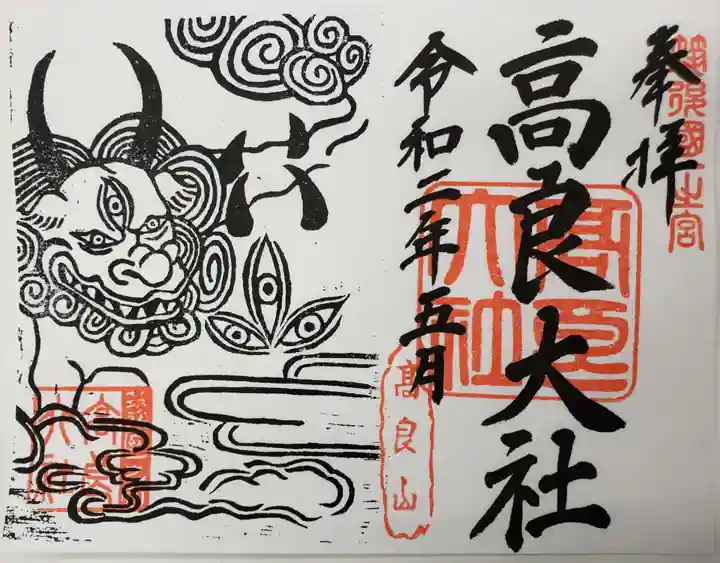 奉拝
筑後國一之宮
高良大社
高良大社
令和二年五月
高良山